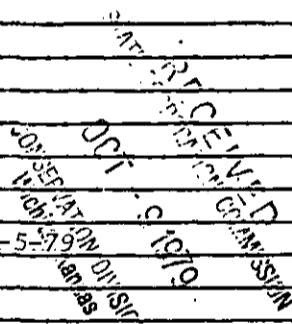 RECEIVED
STATE CORPORATION COMMISSION
OCT 1979
CONSERVATION DIVISION
Wichita, Kansas
-5-79